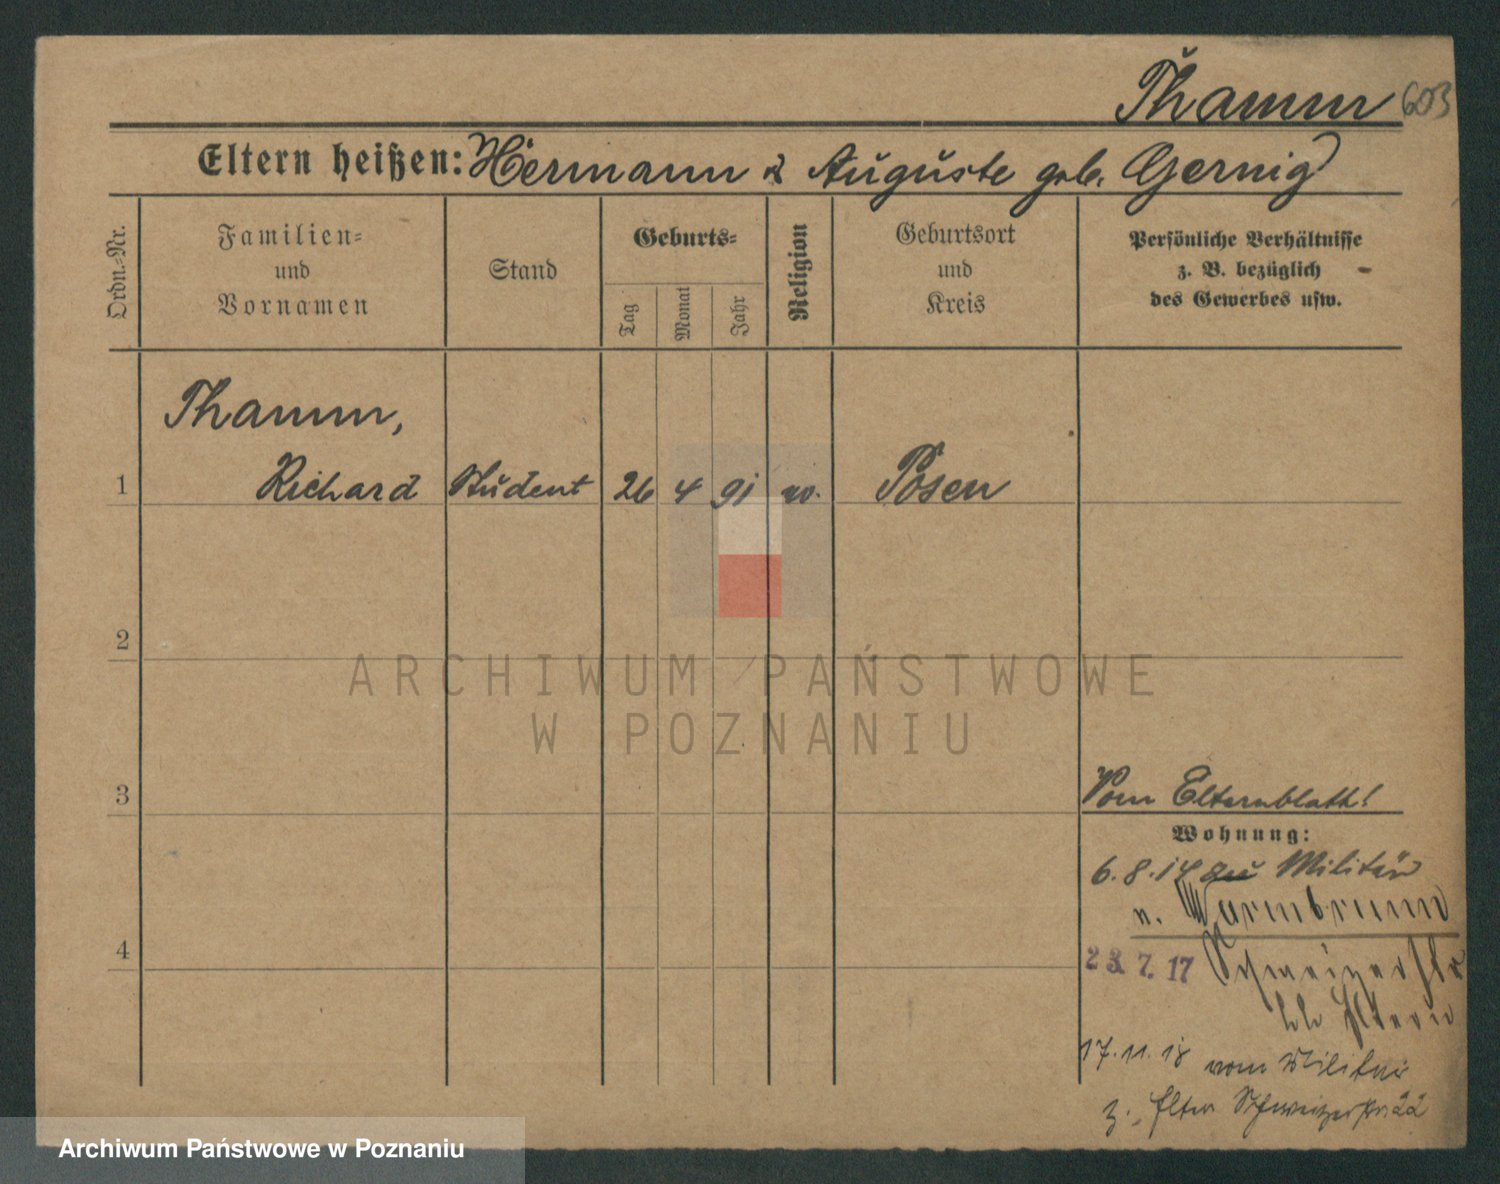 Thamm 603
Eltern heißen: Hermann & Auguste geb. Gernig
Ordn.-Nr.
Familien-
und
Vornamen
Stand
Geburts-
Tag
Monat
Jahr
Religion
Geburtsort
und
Kreis
Persönliche Verhältnisse
z. B. bezüglich
des Gewerbes usw.
Thamm,
1 Richard Student 26 4 91 Posen
2
3
4
Vom Elternblatt!
Wohnung:
6.8.14 zu Militär
n. Warmbrunn
23. 7. 17 Schweizerstr
Eltern
17.11.18 vom Militär
z. Eltern Schweizerstr. 22
ARCHIWUM PAŃSTWOWE
W POZNANIU
Archiwum Państwowe w Poznaniu